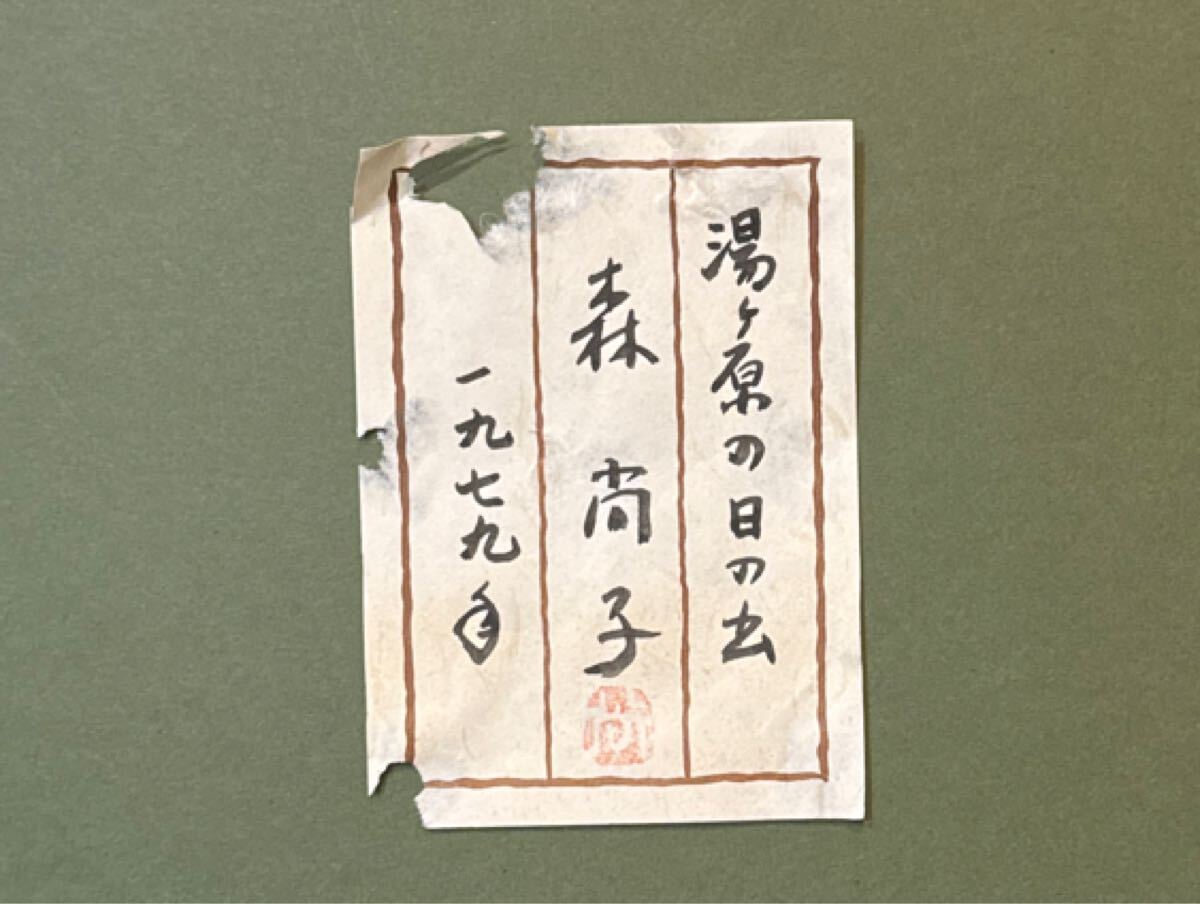 湯ヶ原の日の出
森尚子
一九七九年